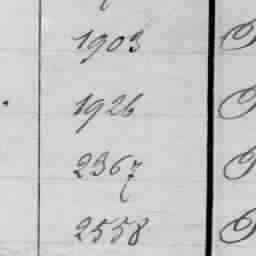 1903
1926
2367
2558